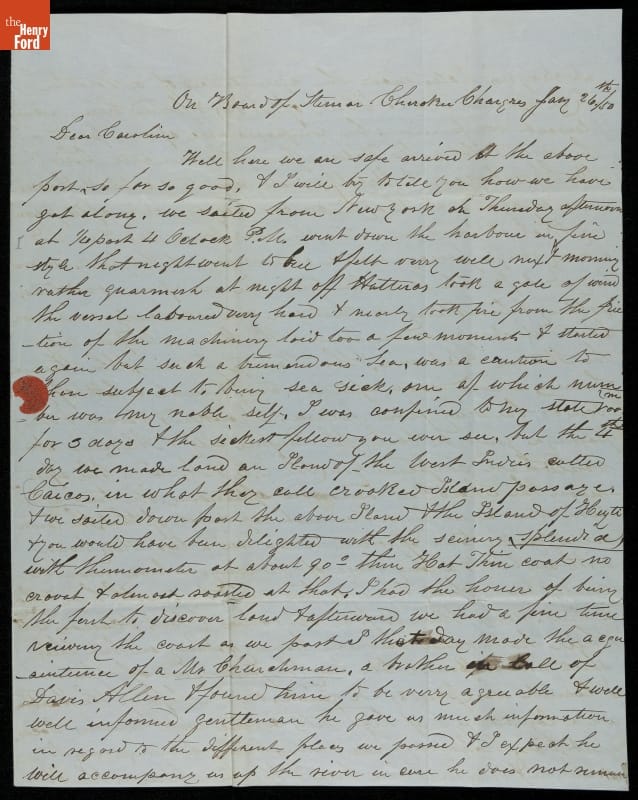 the
Henry
Ford
On Board of Stemer Cherokee Chargres Jany 26th /50
Dear Caroline
Well here we are safe arrived at the above
port, so far so good, & I will try to tele you how we have
got along. we sailed from New York on Thursday afternoon
at ½ past 4 Oclock P.M. went down the harbour in fine
style that night went to bee & slept verry well next morning
rather quarmish at night off Hatteras took a gale of wind
the vessel laboured very hard & nearly took fire from the fric
-tion of the machinery laid too a few moments & started
again but such a tremendous Sea, was a caution to
them subject to being sea sick, one of which num
ber was my noble self, I was confined to my state room
for 3 days & the sickest fellow you ever see, but the 4th
day we made land an Iland of the West Indies called
Caicos, in what they call crooked Island passage,
& we sailed down past the above Iland & the Island of Hayti
& you would have been delighted with the scinery splendid
with thermometer at about 90° thin Hat Thin coat no
cravat & almost roasted at that, I had the honor of being
the first to discover land & afterward we had a fine time
veiwing the coast as we past I day made the acqu
-aintence of a Mr Churchman, a brother of
Davis Allen & found hime to be verry agreeable & well
well informed gentleman he gave us much information
in regard to the different places we passed & I expect he
will accompany us up the river in case he does not remain